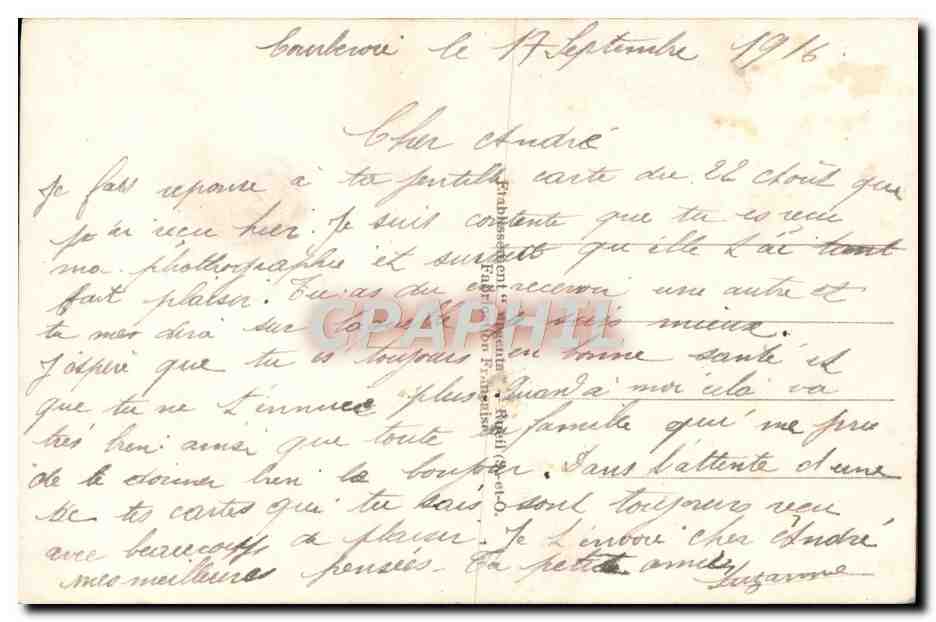 Courbevoie le 17 Septembre 1916
Cher André
Je fais reponse à ta gentille carte du 22 Août que
j'ai reçu hier. Je suis contente que tu es reçu
ma photographie et surtout qu'elle t'ai tant
fait plaisir. Tu as du en recevoir une autre et
tu me dira sur laquelle je suis mieux.
J'espère que tu es toujours en bonne santé et
que tu ne t'ennuie plus. Quand à moi cela va
très bien ainsi que toute la famille qui me prie
de te donner bien le bonjour. Dans l'attente d'une
de tes cartes qui tu sais sont toujours reçu
avec beaucoup de plaisir. Je t'envoie cher André
mes meilleures pensées. Ta petite amie Suzanne
Etablissement "
" Rueil (S.-et-O.
Fabrication Française
CPAPHIL